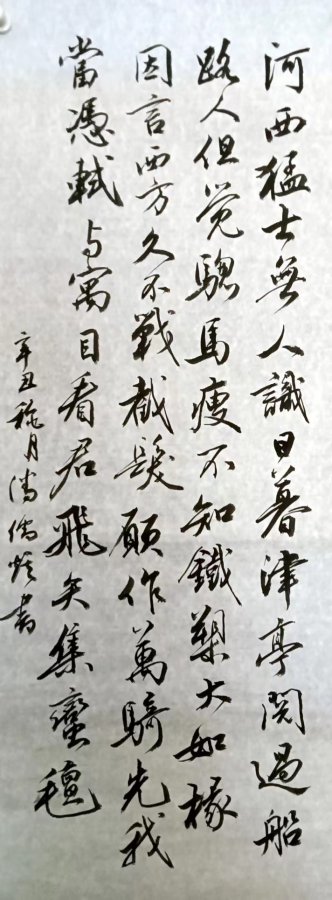 河西猛士無人識日暮津亭閱過船
路人但覺驄馬瘦不知鐵槊大如椽
因言西方久不戰截髮願作萬騎先我
當憑軾与寓目看君飛矢集蠻氊
辛丑 月潘儒 書